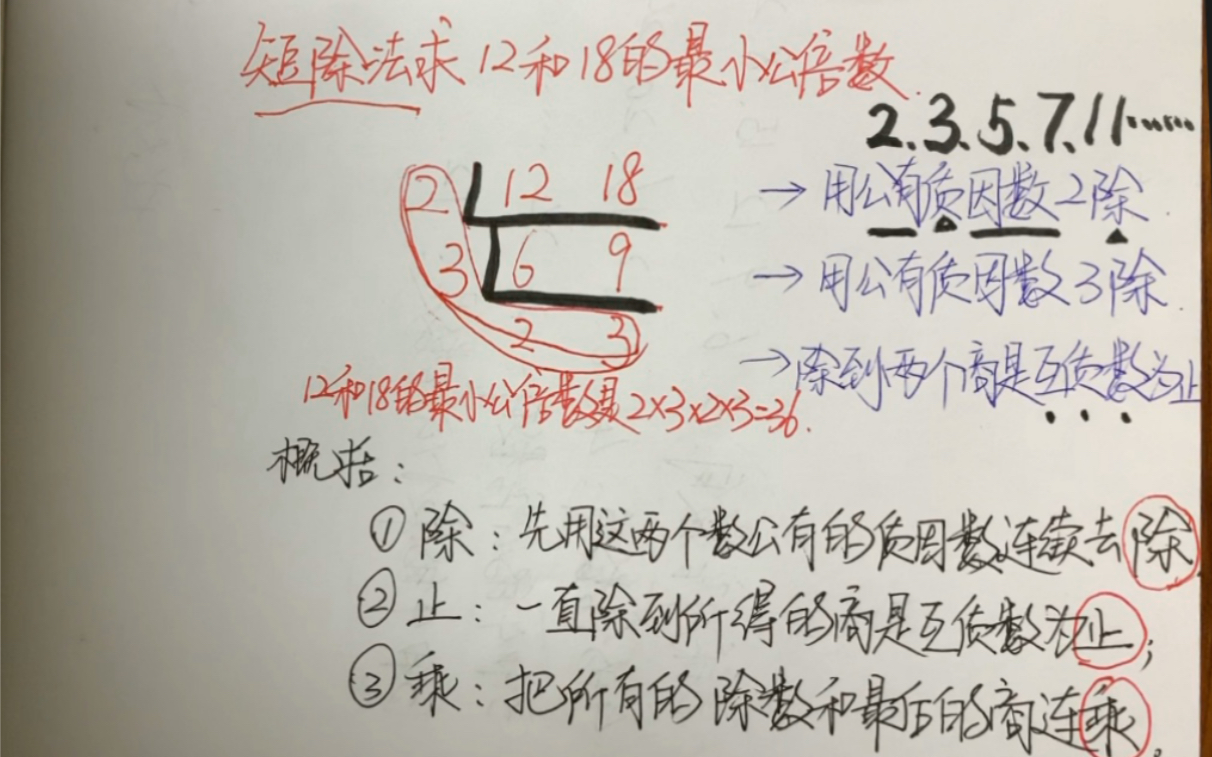 短除法求12和18的最小公倍数.
2.3.5.7.11……
2 12 18 →用公有质因数2除.
3 6 9 →用公有质因数3除.
2 3 →除到两个商是互质数为止
12和18的最小公倍数是2×3×2×3=36.
概括:
①除:先用这两个数公有的质因数连续去除.
②止:一直除到所得的商是互质数为止;
③乘:把所有的除数和最后的商连乘。